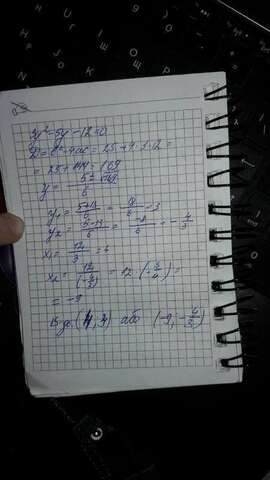 3y²-5y-12=0
D=b²-4ac=25+4·3·12=
=25+144=169
y=5±√169/6
y₁=5+13/6=18/6=3
y₂=5-13/6=-8/6=-4/3
x₁=12/3=4
x₂=12/(-4/3)=12·(-3/4)=
=-9
(4,3) або (-9,-4/3)